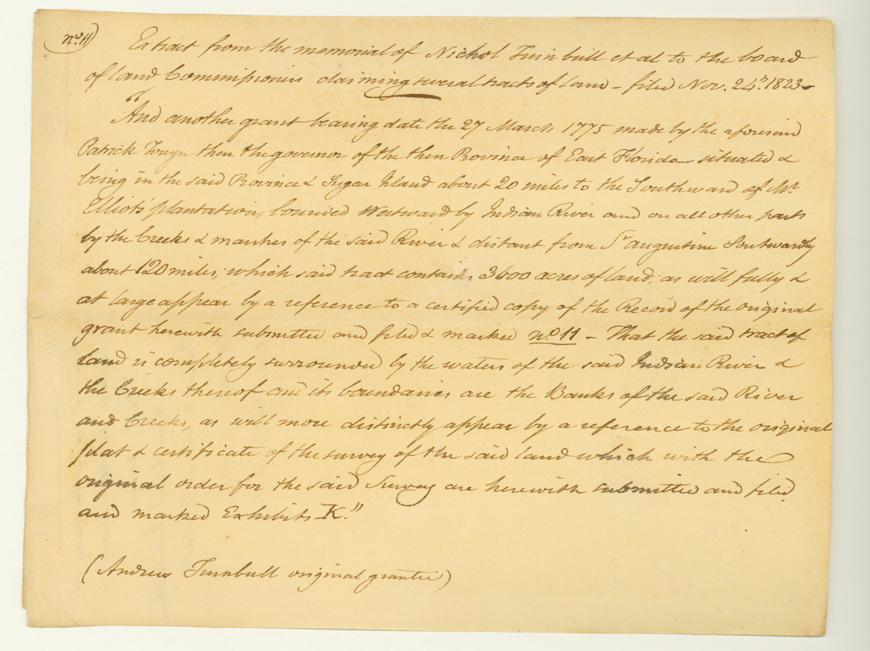 no. 11
Extract from the memorial of Nichol Turnbull et al to the board
of land Commissioners claiming several tracts of land - filed Nov. 24th. 1823 -
"And another grant bearing date the 27 March 1775 made by the aforesaid
Patrick Tonyn then the governor of the then Province of East Florida situated &
being in the said Province & Sugar Island about 20 miles to the Southward of Mr
Elliots plantation, bounded Westward by Indian River and on all other parts
by the Creeks & marshes of the said River & distant from St augustine Southwardly
about 120 miles, which said tract contains 3600 acres of land; as will fully &
at large appear by a reference to a certified copy of the Record of the original
grant herewith submitted and filed & marked no. 11 - That the said tract of
land is completely surrounded by the waters of the said Indian River &
the Creeks thereof and its boundaries are the Banks of the said River
and Creeks, as will more distinctly appear by a reference to the original
plat & certificate of the survey of the said land which with the
original order for the said Survey are herewith submitted and filed
and marked Exhibits K."
(Andrew Turnbull original grantee)